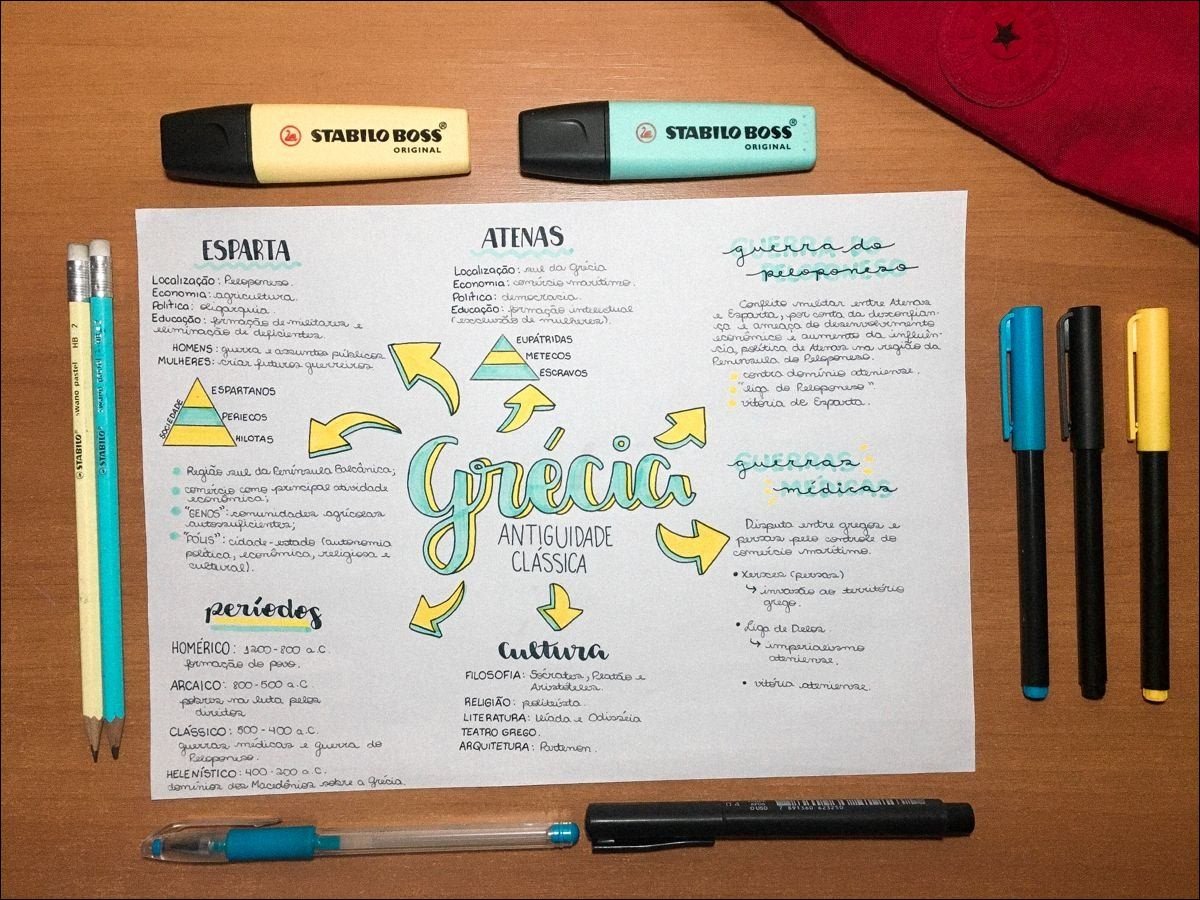 STABILO BOSS®
ORIGINAL
STABILO BOSS®
ORIGINAL
ESPARTA
Localização: Peloponeso.
Economia: agricultura.
Política: oligarquia.
Educação: formação de militares e
eliminação de deficientes.
HOMENS: guerra e assuntos públicos
MULHERES: criar futuros guerreiros
SOCIEDADE
ESPARTANOS
PERIECOS
HILOTAS
Região sul da Península Balcânica;
comércio como principal atividade
econômica;
"GENOS": comunidades agrícolas
autossuficientes;
"PÓLIS": cidade-estado (autonomia
política, econômica, religiosa e
cultural).
períodos
HOMÉRICO: 1200-800 a.C.
formação do povo.
ARCAICO: 800-500 a.C
pobres na luta pelos
direitos
CLÁSSICO: 500-400 a.C.
guerras médicas e guerra do
Peloponeso.
HELENÍSTICO: 400-200 a.C.
domínios dos Macedônios sobre a Grécia.
ATENAS
Localização: sul da Grécia
Economia: comércio marítimo.
Política: democracia.
Educação: formação intelectual
(exclusão de mulheres).
EUPÁTRIDAS
METECOS
ESCRAVOS
Grécia
ANTIGUIDADE
CLÁSSICA
Cultura
FILOSOFIA: Sócrates, Platão e
Aristóteles.
RELIGIÃO: politeísta.
LITERATURA: Ilíada e Odisséia
TEATRO GREGO.
ARQUITETURA: Partenon.
GUERRA DO
guerra do
PELOPONESO
peloponeso
Conflito militar entre Atenas
e Esparta, por conta da desconfian-
ça e ameaça do desenvolvimento
econômico e aumento da influên-
cia, política de Atenas na região da
Península do Peloponeso.
contra domínio ateniense.
"liga do Peloponeso".
vitória de Esparta.
GUERRAS
guerras
MÉDICAS
médicas
Disputa entre gregos e
persas pelo controle do
comércio marítimo.
• Xerxes (persas)
↳ invasão ao território
grego.
• Liga de Delos.
↳ imperialismo
ateniense.
• vitória ateniense.
STABILO® swano pastel HB 2
STABILO®
7 891360 623250